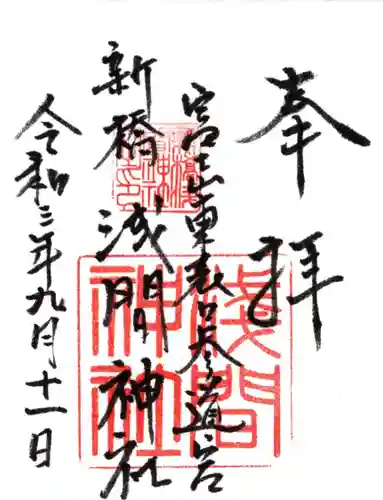 奉拝
富士山東表口参道宮
新橋浅間神社
令和三年九月十一日
浅間神社